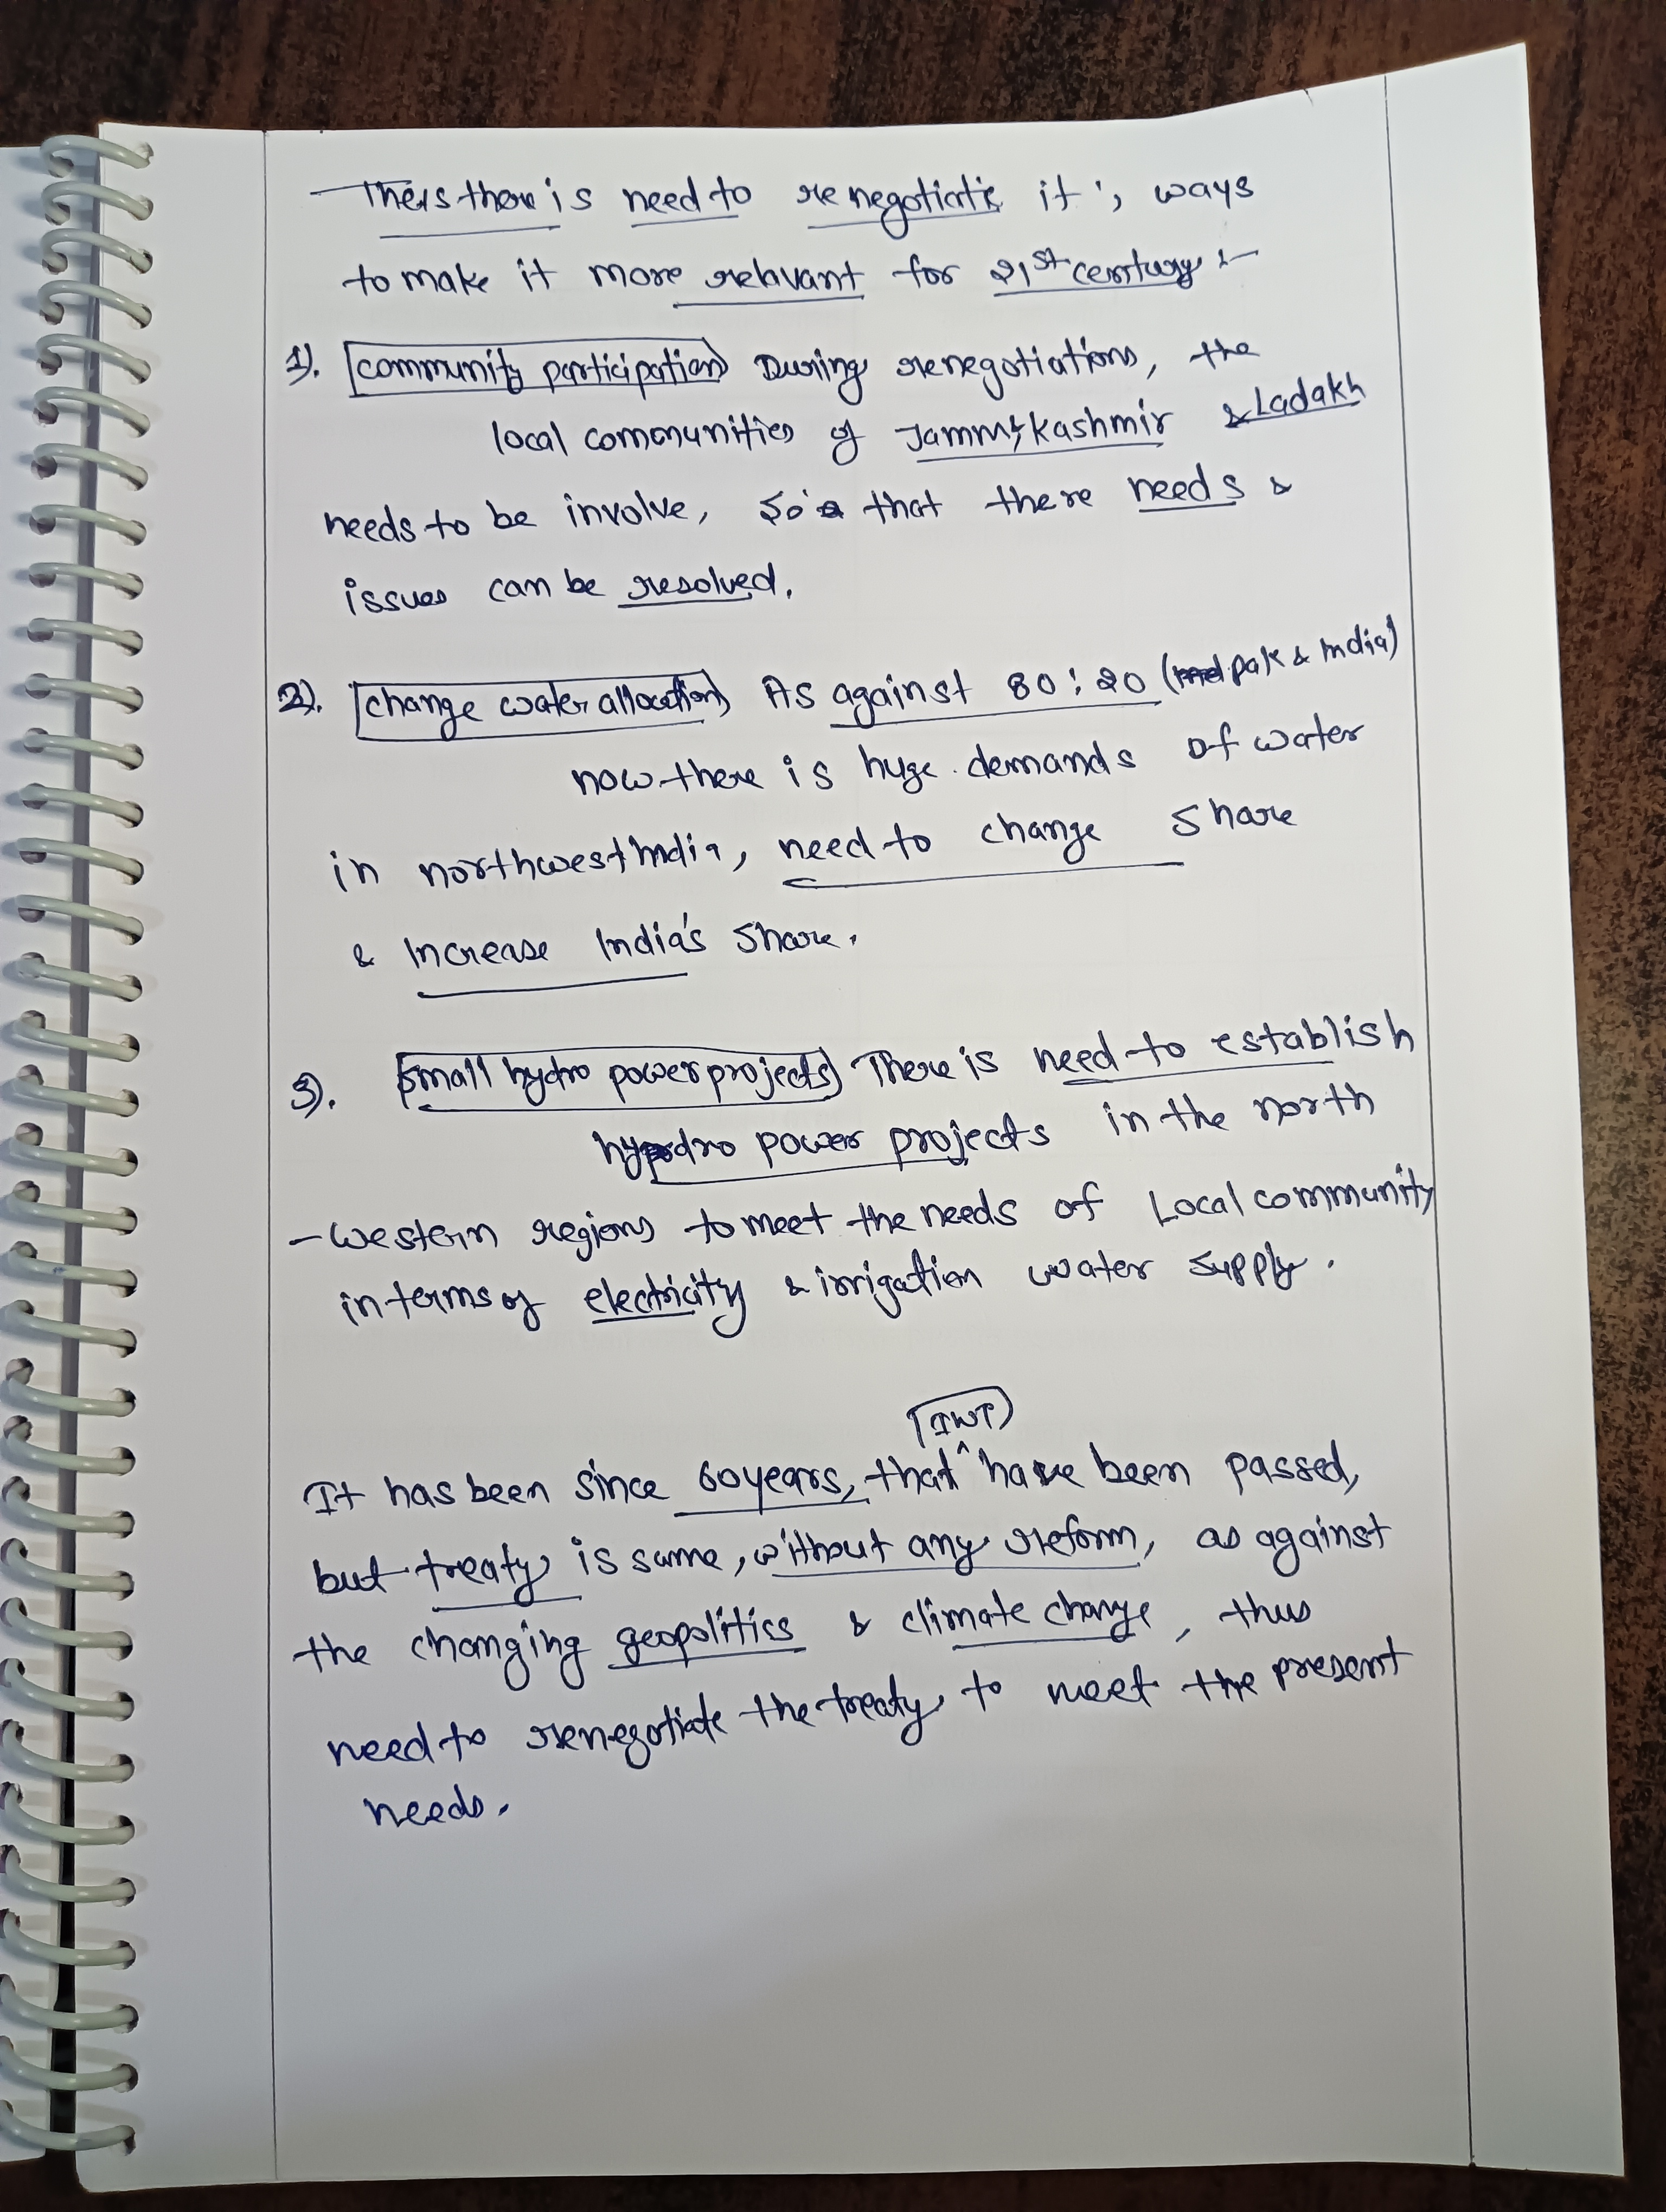 Thus there is need to renegotiate it, ways
to make it more relavant for 21st century :-
1). community participation During renegotiations, the
local communities of Jammu & Kashmir & Ladakh
needs to be involve, so that there needs &
issues can be resolved.
2). change water allocation As against 80:20 (pak & India)
now there is huge demands of water
in northwest India, need to change share
& Increase India's share.
3). Small hydro power projects There is need to establish
hydro power projects in the north
-western regions to meet the needs of Local community
in terms of electricity & irrigation water supply.
IWT
It has been since 60 years, that ^ have been passed,
but treaty is same, without any reform, as against
the changing geopolitics & climate change, thus
need to renegotiate the treaty to meet the present
needs.